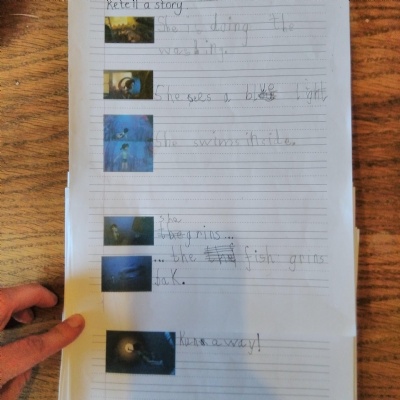 Retell a story
She is doing the
washing.
She sees a blue light
She swims in cite.
she
the grins...
... the the fish grins
bak.
Ran a way!